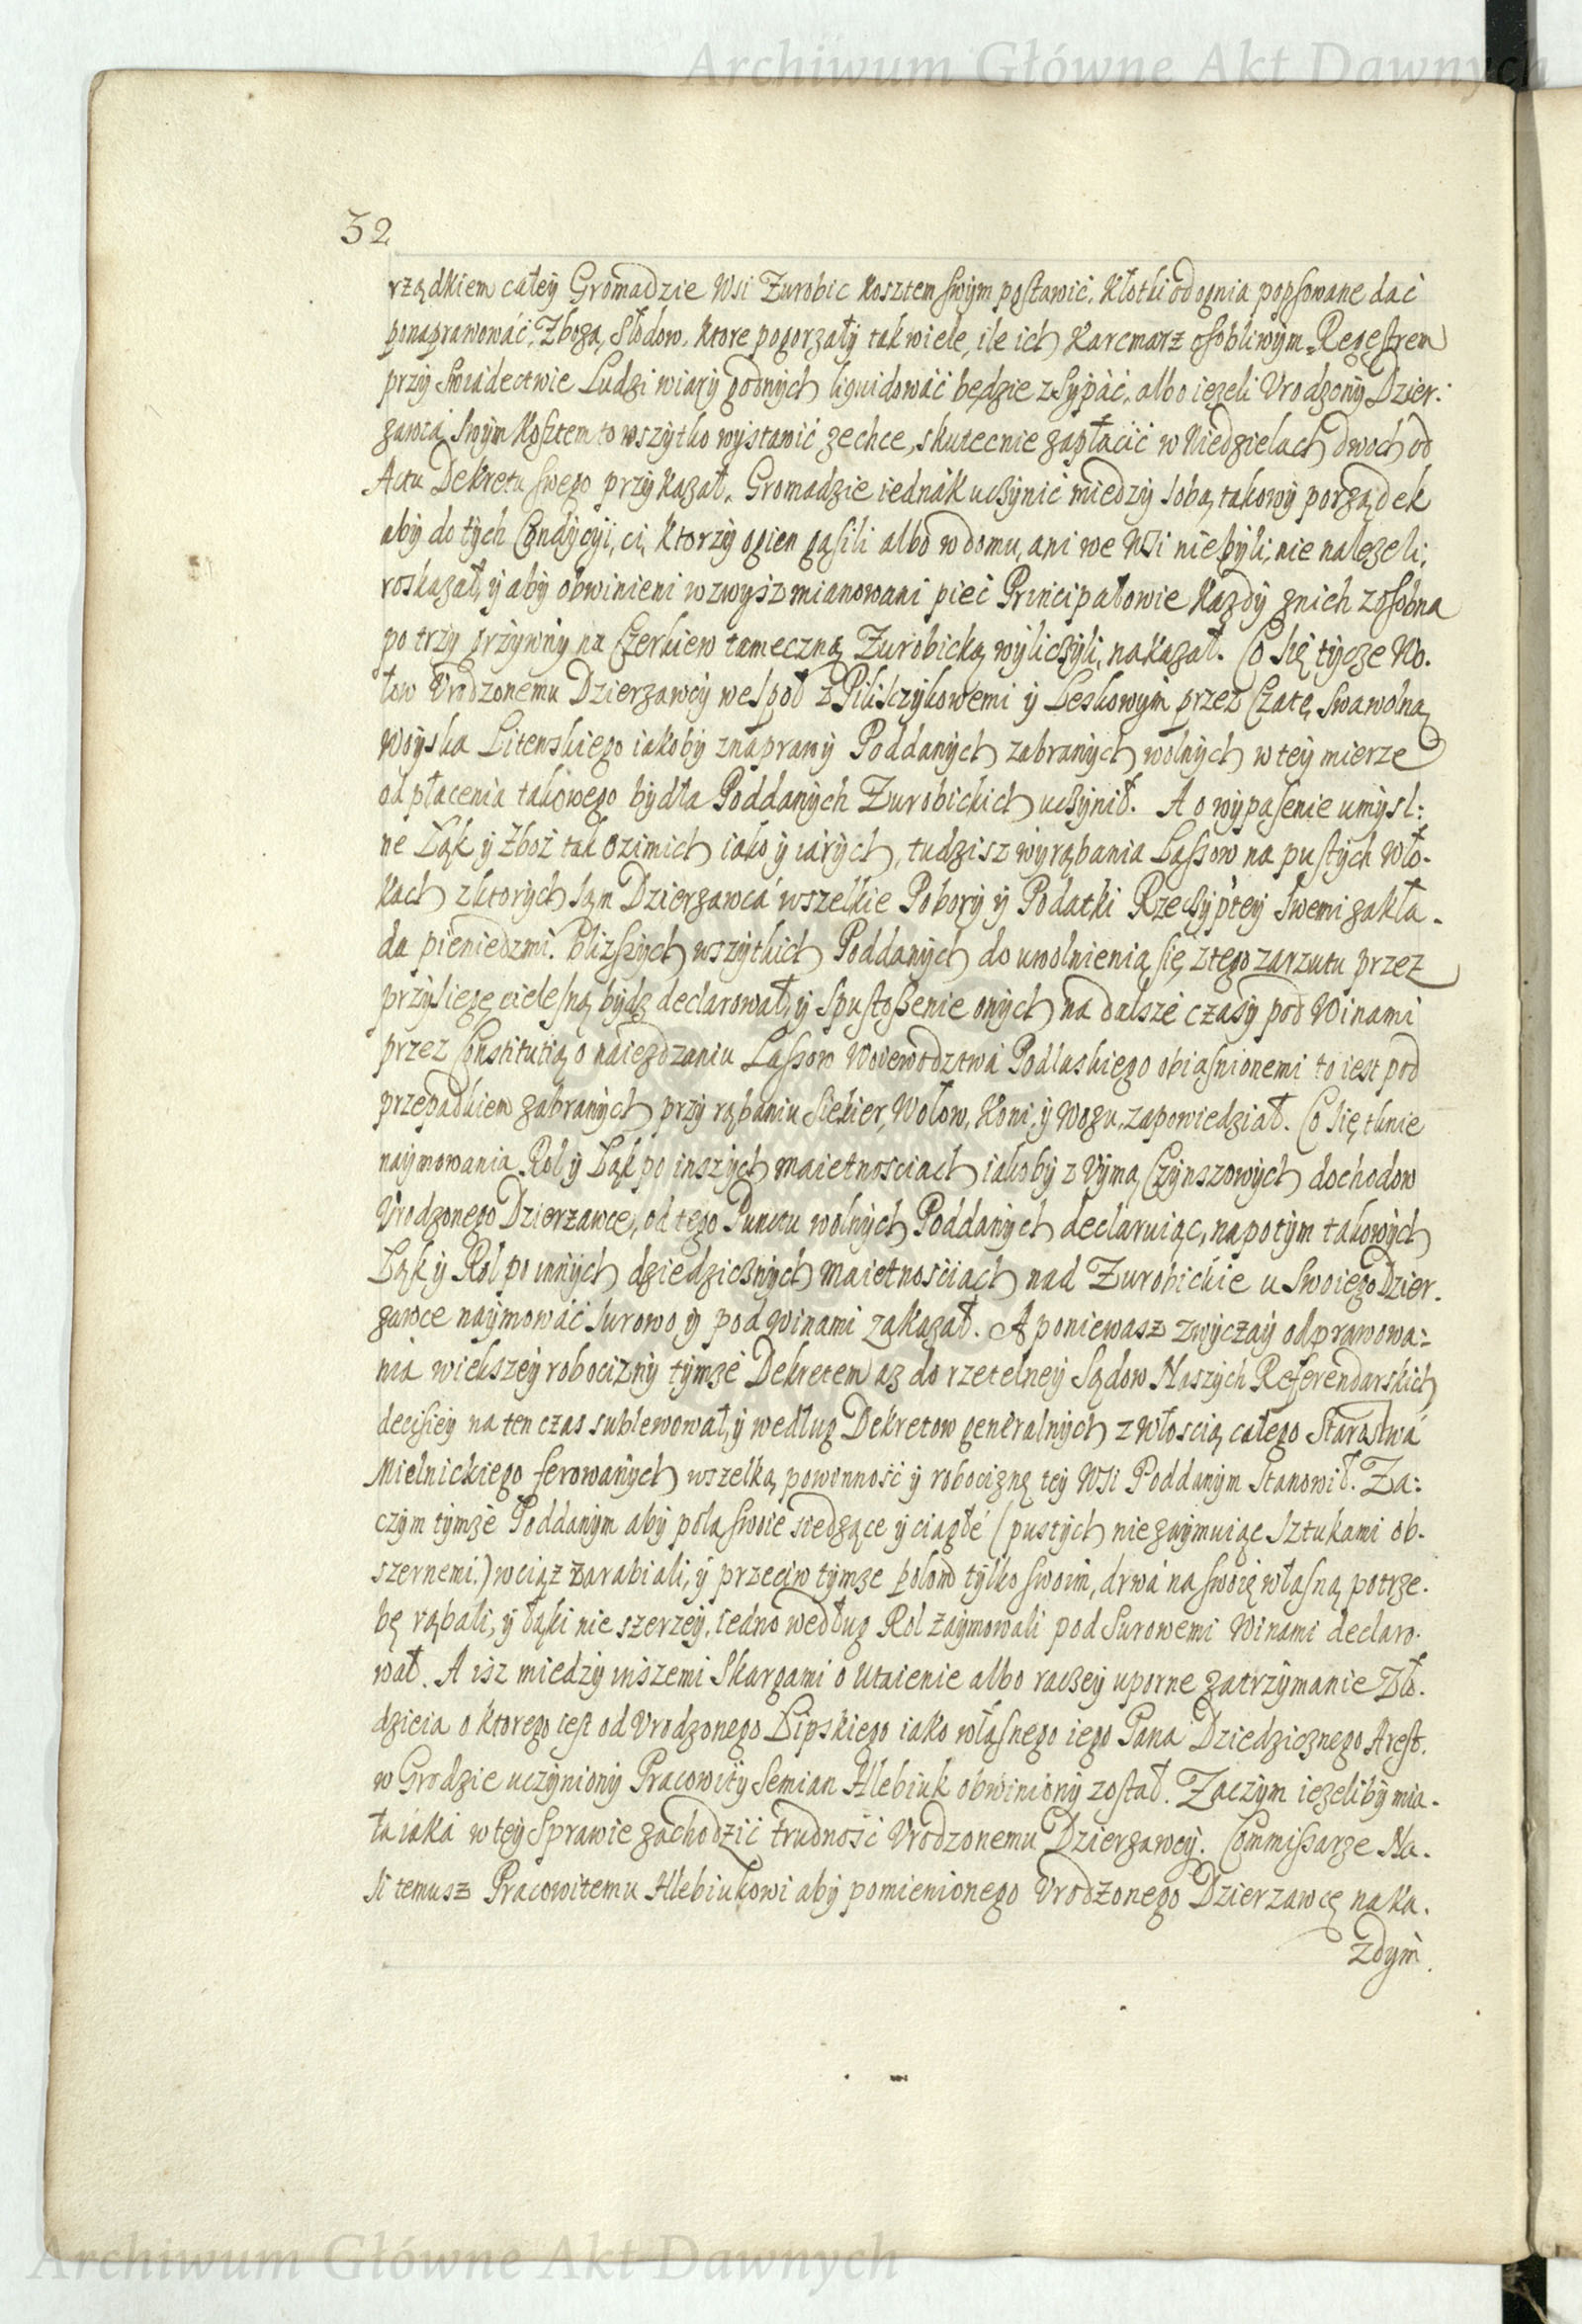 Archiwum Główne Akt Dawnych
32
rządkiem całey Gromadzie Wsi Zurobic kosztem swym postawić, kłotki od ognia popsowane dać
ponaprawować, Zboza, Słodow, ktore pogorzały tak wiele, ile ich Karcmarz osobliwym Regestrem
przy swiadectwie Ludzi wiary godnych liquidowáć będzie zsypáć, albo iezeli Vrodzony Dzier:
zawcá swym kosztem to wszytko wystawić zechce, skutecnie zapłacić w Niedzielach dwoch od
Actu Dekretu swego przykazał. Gromadzie iednák uczynić miedzy sobą takowy porządek
aby do tych Condycyi, ci, ktorzy ogien gasili albo w domu, ani we Wsi niebyli, nie nalezeli,
roskazał, y aby obwinieni wzwysz mianowani pieć Principałowie kazdy znich zosobna
po trzy grzywny na Cerkiew tameczną Zurobicką wyliczyli, nakazał. Co się tycze Wo.
łow Vrodzonemu Dzierzawcy wespoł z Pikiczykowemi y Leskowym przez Czatę swawolną
Woyska Litewskiego iakoby znaprawy Poddanych zabranych wolnych w tey mierze
od płacenia takowego bydła Poddanych Zurobickich uczynił. A o wypasenie umysl:
ne Łąk y zboz tak ozimich iako y iárych, tudzisz wyrąbania Lassow na pustych Wło-
kach z ktorych sąm Dzierzawcá wszelkie Pobory y Podatki Rzeczypltey swemi zakła-
da pieniedzmi. blizszych wszytkich Poddanych do uwolnienia się z tego zarzutu przez
przysiegę cielesną bydz declarował, y spustoszenie onych na dalsze czasy pod Winami
przez Constitutią o naiezdzaniu Lassow Woiewodztwá Podlaskiego obiasnionemi to iest pod
przepadkiem zabranych przy rąbaniu siekier, Wołow, Koni, y Wozu, zapowiedział. Co się tknie
naymowania Rol y Łąk po inszych maietnosciach iakoby z Vymą Czynszowych dochodow
Vrodzonego Dzierzawce, od tego Punctu wolnych Poddanych declaruiąc, napotym takowych
Łąk y Rol po innych dziedzicznych maietnosciach nad Zurobickie u swoiego Dzier.
zawce naymowáć surowo y pod winami zakazał. A poniewasz zwyczay odprawowa:
nia wiekszey robocizny tymze Dekretem az do rzetelney Sądow Naszych Referendarskich
decisiey na ten czas sublewował, y według Dekretow generalnych z Włoscią całego Starostwá
Mielnickiego ferowanych wszelką powinność y robociznę tey Wsi Poddanym stanowił. Za:
czym tymze Poddanym aby pola swoie siedzące y ciagłe (pustych nie zaymuiąc sztukami ob-
szernemi.) wciąz zarabiali, y przeciw tymze polom tylko swoim, drwá na swoię własną potrze.
bę rąbali, y łąki nie szerzey, iedno według Rol zaymowali pod surowemi Winami declaro.
wał. A isz miedzy inszemi skargami o utaienie albo raczey uporne zatrzymanie Zło.
dzieia o ktorego iest od Vrodzonego Lipskiego iako własnego iego Pana Dziedzicznego Arest.
w Grodzie uczyniony Pracowity Semian Hlebiuk obwiniony został. Zaczym iezeliby mia-
ła iáka w tey sprawie zachodzić trudność Vrodzonemu Dzierzawcy. Commissarze Na.
si temusz Pracowitemu Hlebiukowi aby pomienionego Vrodzonego Dzierzawcę na ka.
zdym
Archiwum Główne Akt Dawnych